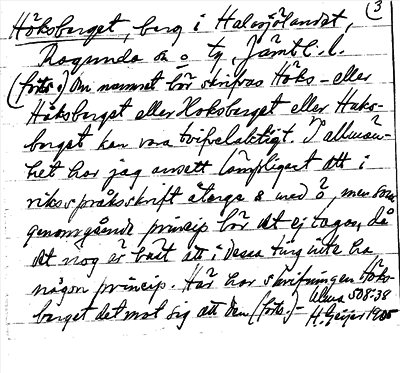 (3
Höksberget, berg i Halasjölandet,
Ragunda sn o tg, Jämtl. l.
(forts.) Om namnet bör skrifvas Höks- eller
Håksberget eller Hoksberget eller Haks-
berget kan vara tvifvelaktigt. I allmän-
het har jag ansett lämpligast att i
riksspråksskrift återge a med ö, men som
genomgående princip bör det ej tagas, då
det nog är bäst att i dessa ting inte ha
någon princip. Här har skrifningen Höks-
berget det mot sig att den (forts.)-
Alma 508:38
H. Geijer 1905